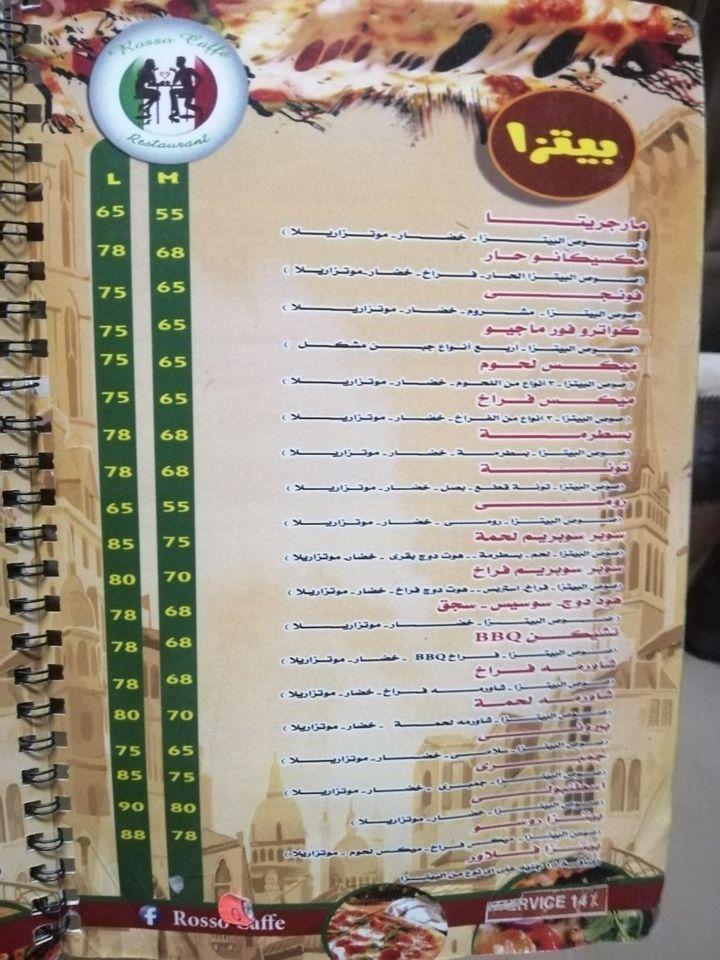 Rosso Caffe
Restaurant
بيتزا
L M
65 55
مارجريتا
( صوص البيتزا - خضار - موتزاريلا )
78 68
مكسيكانو حار
( صوص البيتزا الحار - فراخ - خضار - موتزاريلا )
75 65
فونجى
( صوص البيتزا - مشروم - خضار - موتزاريلا )
75 65
كواترو فورماجيو
( صوص البيتزا - أربع أنواع جبن مشكل )
75 65
ميكس لحوم
( صوص البيتزا - ٣ أنواع من اللحوم - خضار - موتزاريلا )
75 65
ميكس فراخ
( صوص البيتزا - ٣ انواع من الفراخ - خضار - موتزاريلا )
78 68
بسطرمة
( صوص البيتزا - بطرمة - خضار - موتزاريلا )
78 68
تونة
( صوص البيتزا - تونة قطع - بصل - خضار - موتزاريلا )
65 55
رومى
( صوص البيتزا - رومى - خضار - موتزاريلا )
85 75
سوبر سوبريم لحمة
( صوص البيتزا - لحم - بسطرمة - هوت دوج بقرى - خضار - موتزاريلا )
80 70
سوبر سوبريم فراخ
( صوص البيتزا - فراخ استربس - هوت دوج فراخ - خضار - موتزاريلا )
78 68
هوت دوج - سوسيس - سجق
( صوص البيتزا - خضار - موتزاريلا )
78 68
تشيكن BBQ
( صوص البيتزا - فراخ BBQ - خضار - موتزاريلا )
78 68
شاورمه فراخ
( صوص البيتزا - شاورمه فراخ - خضار - موتزاريلا )
80 70
شاورمه لحمة
( صوص البيتزا - شاورمه لحمة - خضار - موتزاريلا )
75 65
( صوص البيتزا - سلامى - خضار - موتزاريلا )
85 75
جمبرى
( صوص البيتزا - جمبرى - خضار - موتزاريلا )
90 80
( صوص البيتزا - خضار - موتزاريلا )
88 78
بيتزا روسو
( صوص البيتزا - ميكس فراخ - ميكس لحوم - موتزاريلا )
بيتزا فلاور
١٥ جنيه على اى نوع من البيتزا
Rosso Caffe
SERVICE 14%